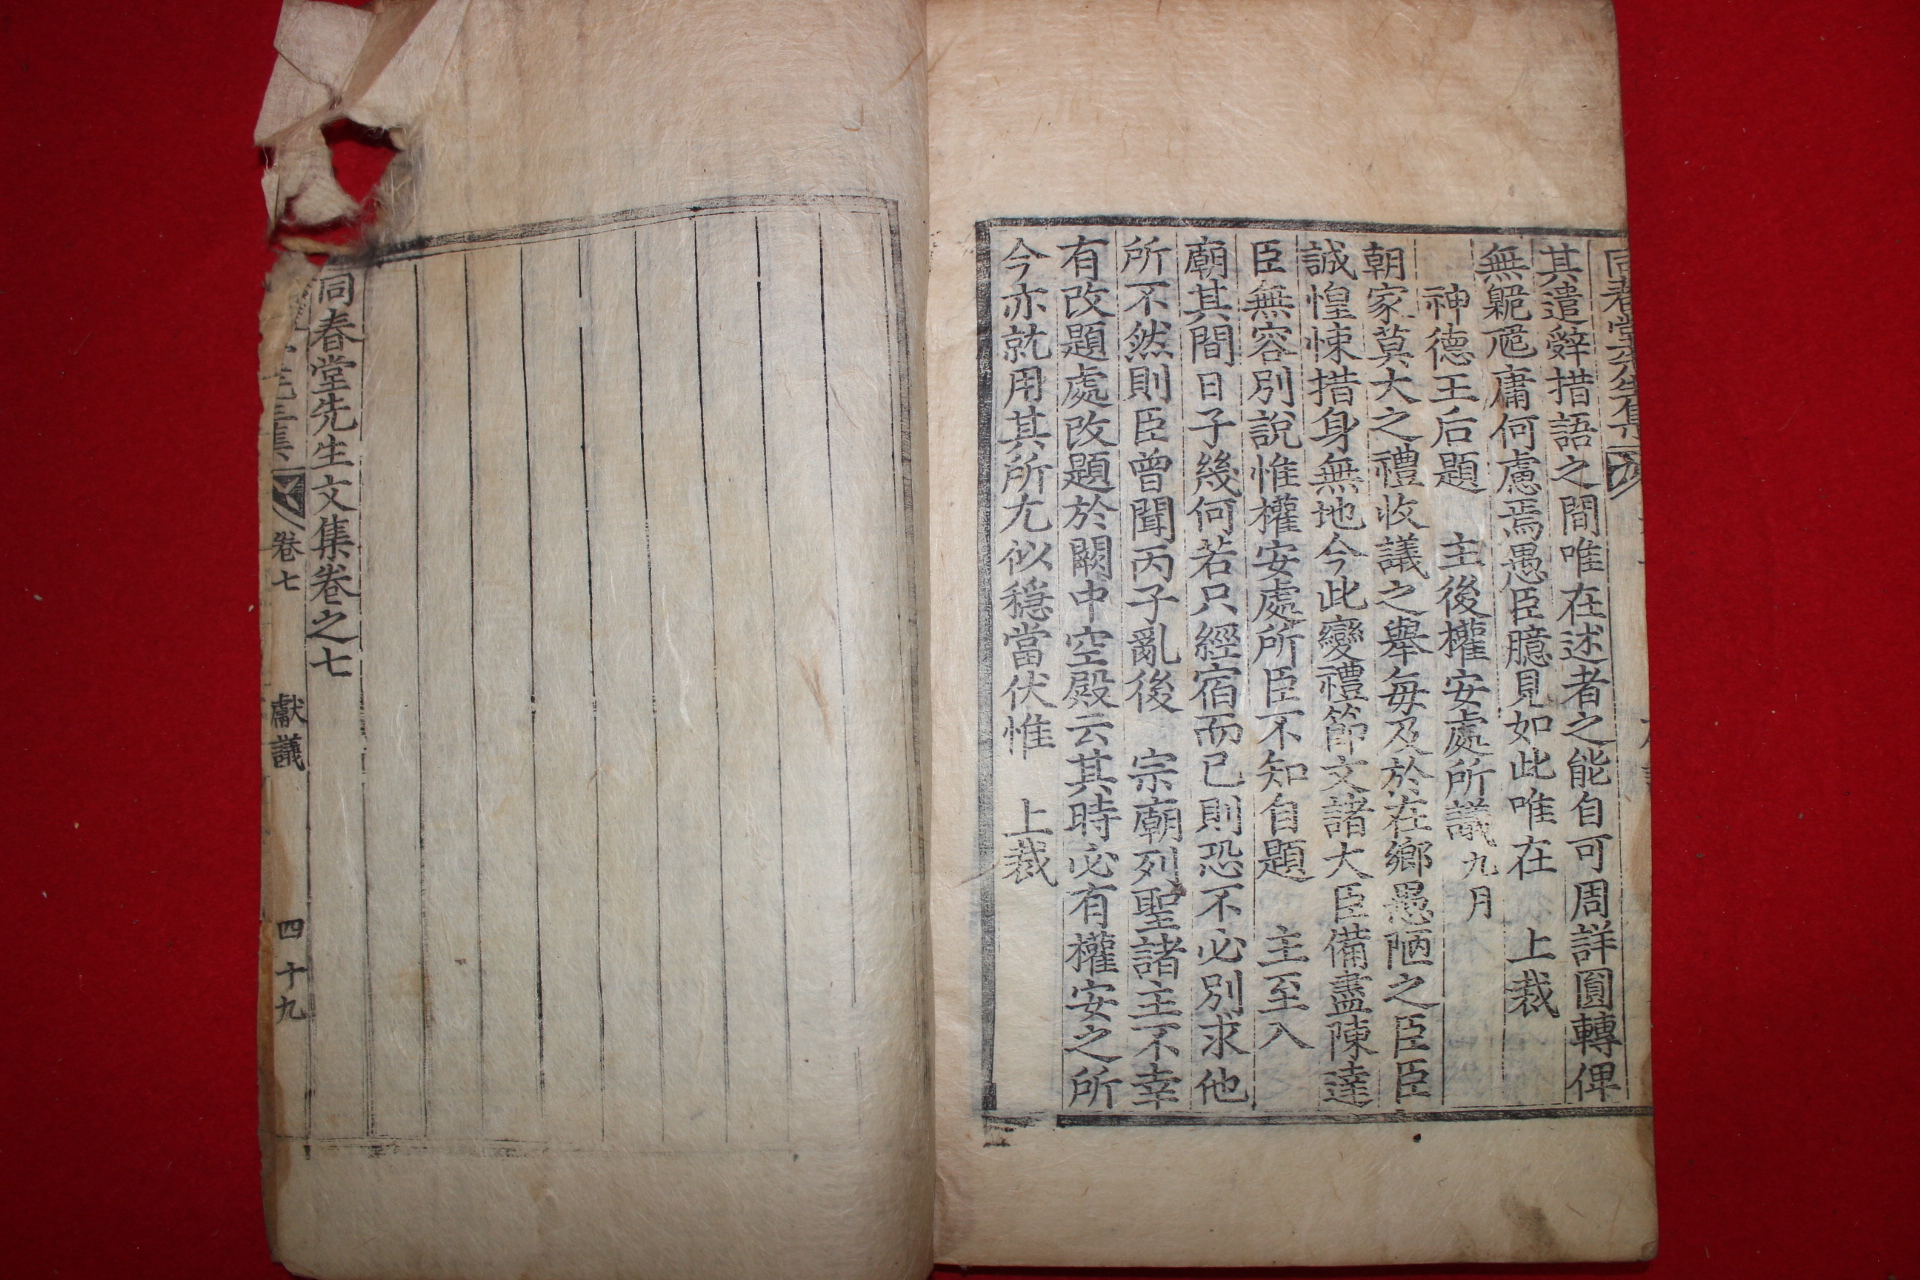 其遣辭措語之間唯在述者之能自可周詳圓轉俾
無臲卼庸何慮焉愚臣臆見如此唯在　上裁
神德王后題　主後權安處所議九月
朝家莫大之禮收議之舉每每及於在鄉愚陋之臣臣
誠惶悚措身無地今此變禮節文諸大臣備盡陳達
臣無容別說惟權安處所臣不知自題　主至入
廟其間日子幾何若只經宿而已則恐不必別求他
所不然則臣曾聞丙子亂後　宗廟列聖諸主不幸
有改題處改題於闕中空殿云其時必有權安之所
今亦就用其所尤似穩當伏惟　上裁
同春堂先生文集卷之七
卷七　獻議　四十九